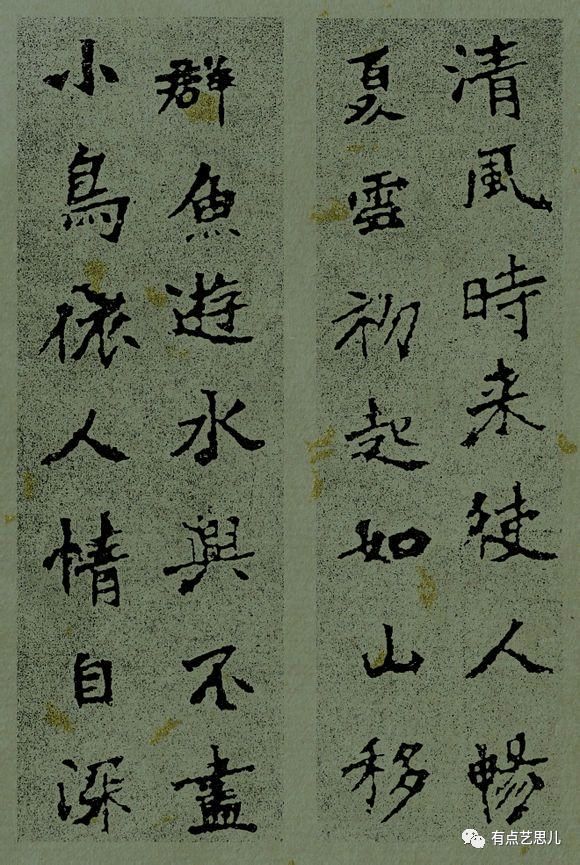 清風時来使人暢
夏雲初起如山移
群魚遊水興不盡
小鳥依人情自深
有点艺思儿